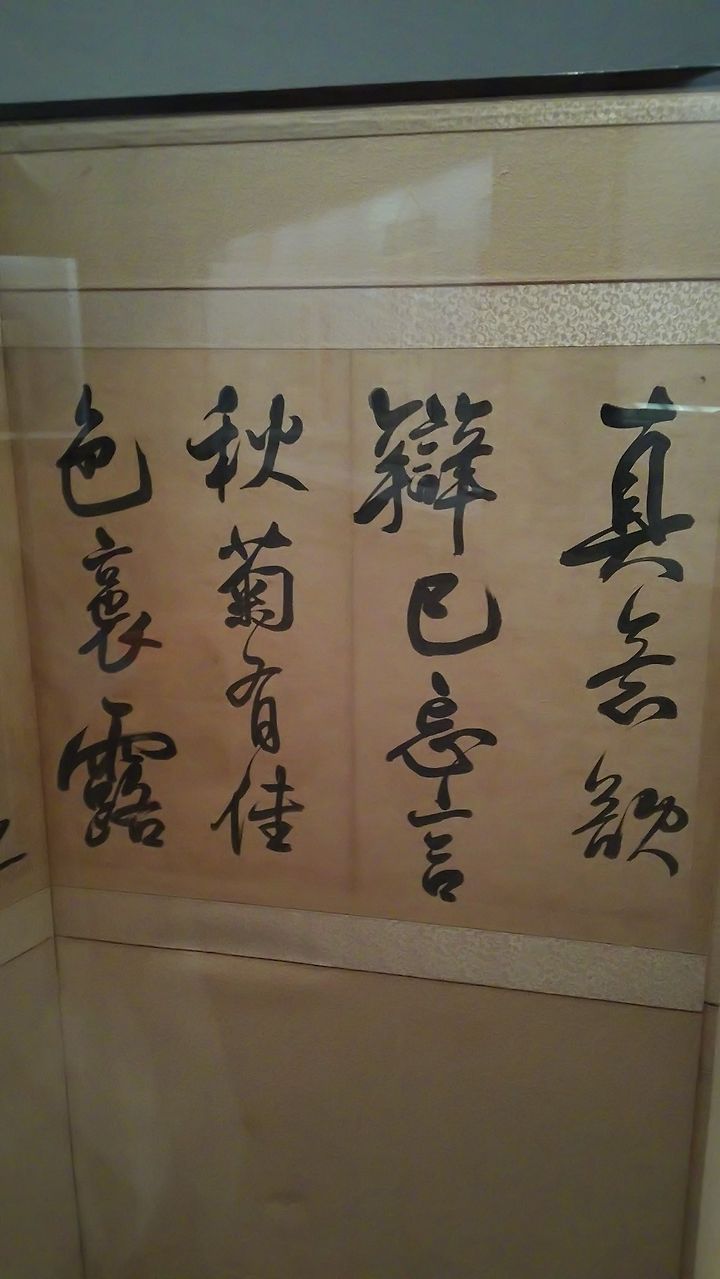 真意欲
辯已忘言
秋菊有佳
色裛露